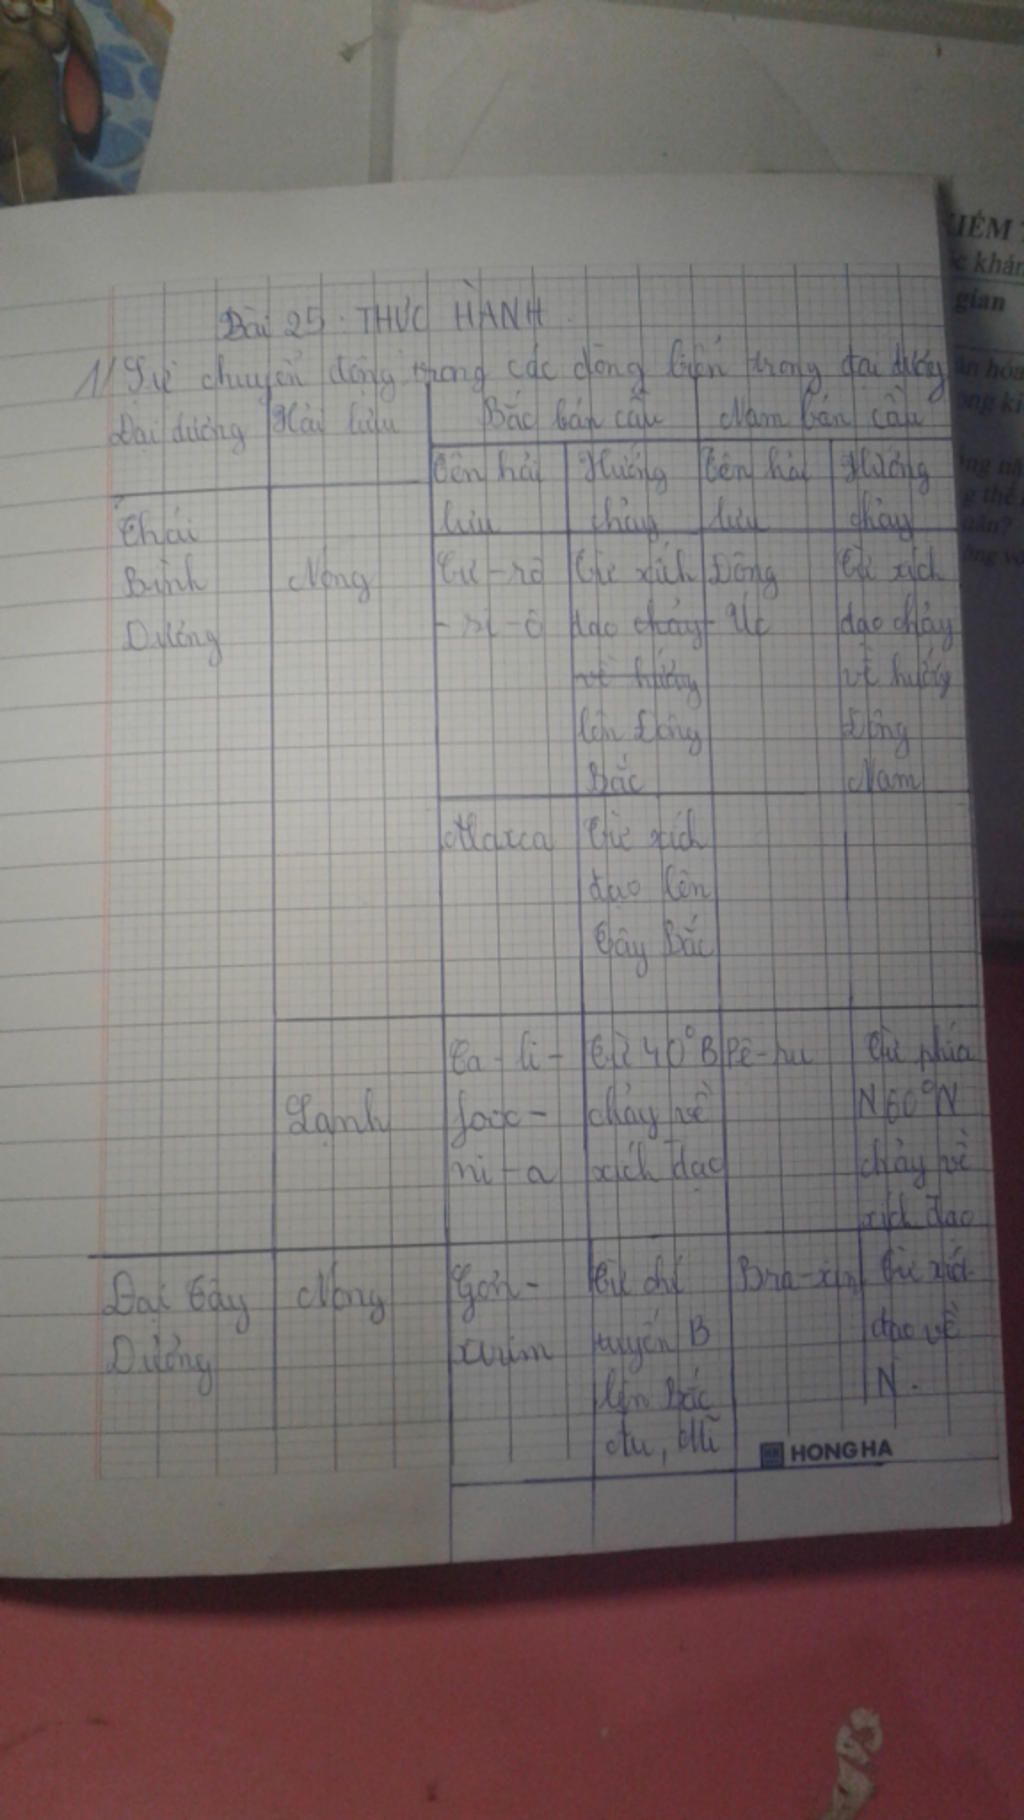 Bài 25: THỰC HÀNH
1/ Sự chuyển động trong các dòng biển trong đại dương
Đại dương Hải lưu Bắc bán cầu Nam bán cầu
Tên hải Hướng Tên hải Hướng
lưu chảy lưu chảy
Thái
Bình Nóng Cư-rô Từ xích Đông Từ xích
Dương -si-ô đạo chảy Úc đạo chảy
về hướng về hướng
lên Đông Đông
Bắc Nam
Alaxca Từ xích
đạo lên
Tây Bắc
Lạnh
Ca-li- Từ 40°B Pê-ru Từ phía
fooc- chảy về N60°N
ni-a xích đạo chảy về
xích đạo
Đại Tây Nóng Gơn- Từ chí Bra-xin Từ xích
Dương xtrim tuyến B đạo về
lên Bắc N.
Âu, Mĩ
HONG HA
IỂM
khán
gian